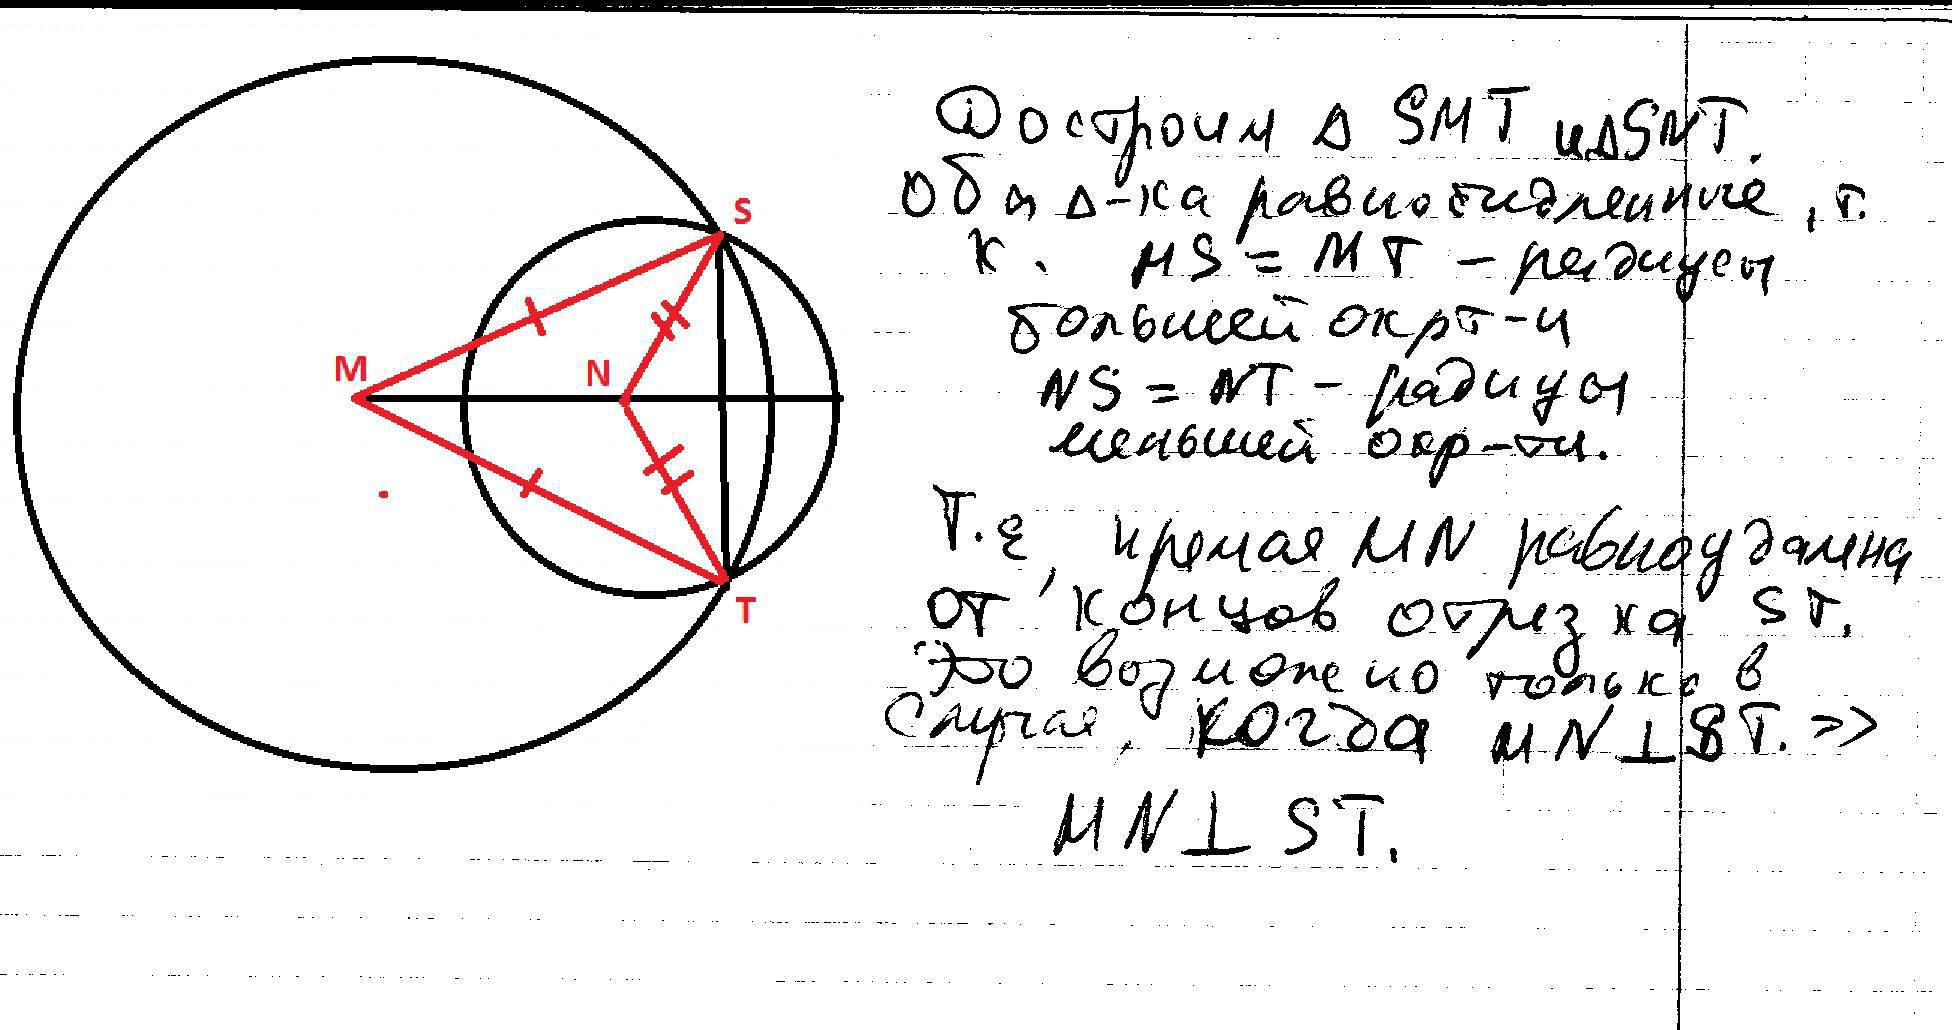 S
M
N
T
Достроим Δ SMT и Δ SNT.
Оба Δ-ка равнобедренные, т.
к. MS = MT – радиусы
большей окрт-и
NS = NT – радиусы
меньшей окр-ти.
Т.е, прямая MN равноудалена
от концов отрезка ST.
Это возможно только в
случае, когда MN⊥ST. =>
MN⊥ST.